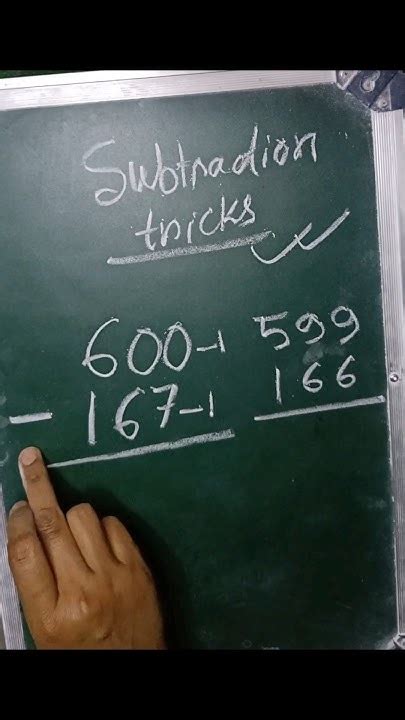 Subtradion
tricks
600-1 599
- 167-1 166